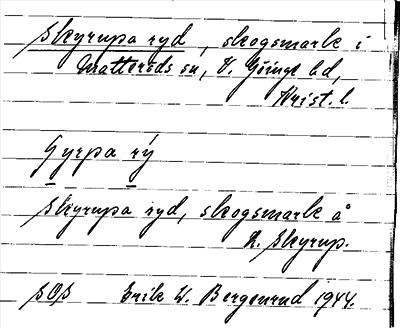 Skyrupa ryd, skogsmark i
Matteröds sn, V. Göinge hd,
Krist. l.
Gyrpa rý
Skyrupa ryd, skogsmark å
N. Skyrup.
SOS Erik W. Bergenrud 1944.